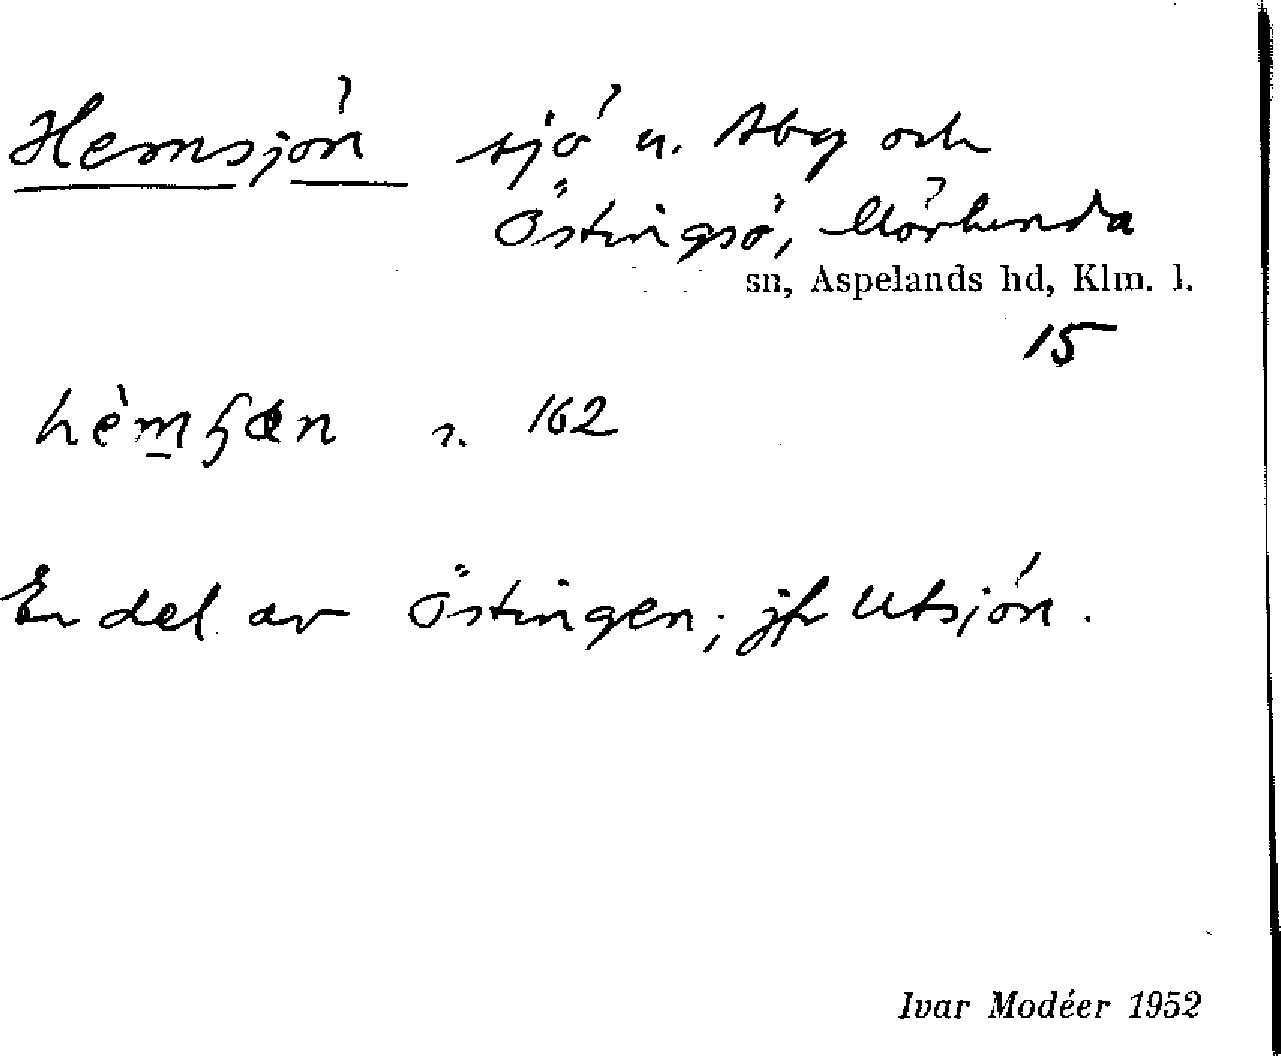 Hemsjön sjö u. Åby och
Östingsö, Mörlunda
sn, Aspelands hd, Klm. l.
15
s. 162
En del av Östingen; jfr Utsjön.
Ivar Modéer 1952